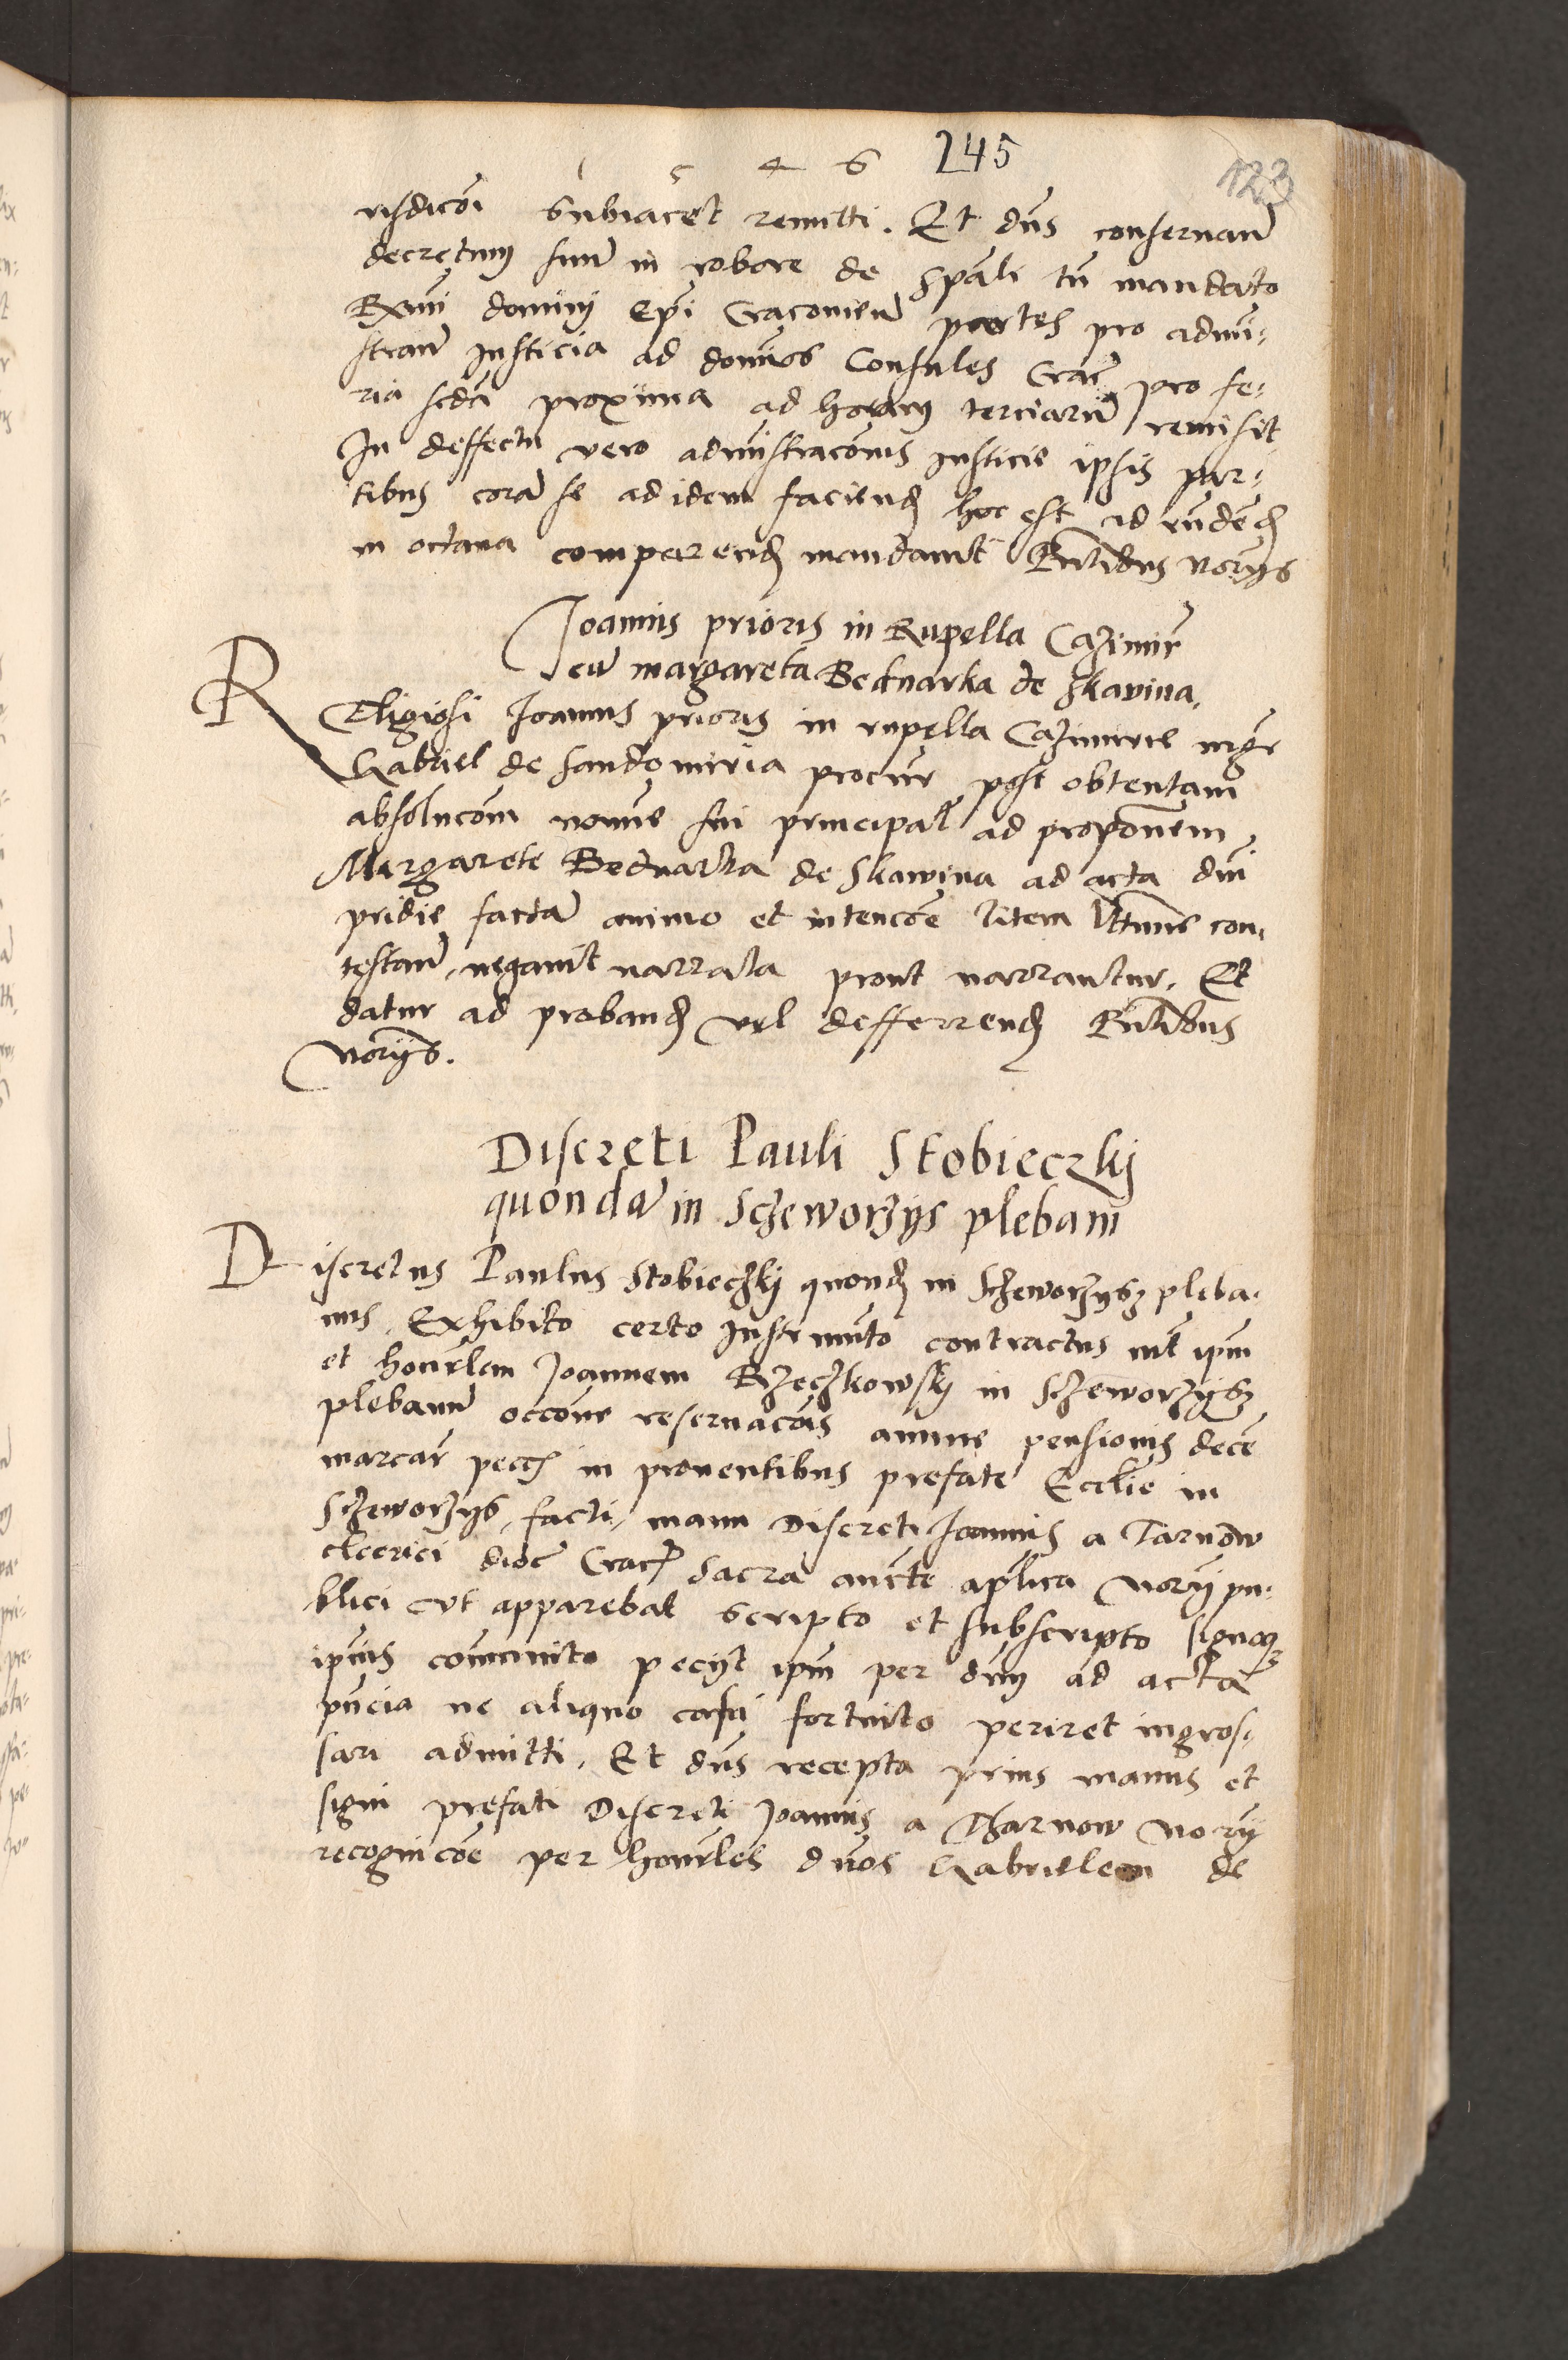 1 5 4 6 245
123
risdicoi subiacet remitti. Et dns conservan
decretum suu in robore de spali tn mandato
Rxmi domini Epi Cracovien partes pro admi-
stran Justicia ad domnos Consules Crac pro fe-
ria scda proxima ad horam terciaru remisit
In deffectu vero admistracois Justicie ipsis par-
tibus cora se ad idem faciend hoc est ad rndend
in octava comparend mandavit Pntibus Norijs
Joannis prioris in Rupella Cazimir
cu margareta Bednarka de Skavina,
Religiosi Joannis prioris in rupella Cazimirie mgr
Gabriel de Sandomiria procur post obtentam
absolucom nomie sui principal ad proponem
Margarete Bednarka de Skawina ad acta dni
pridie facta animo et intencoe litem lttime con,
testan, negavit narrata prout narrantur. Et
datur ad proband vel defferrend Pntibus
Norijs.
Discreti Pauli Stobieczkj
quonda in Sczeworzijs plebani
Discretus Paulus Stobieczkj quond in Sczeworzijs pleba-
nus, Exhibito certo Instrumto contractus int ipm
et honrlem Joannem Rzeczkowskj in Sczeworzijs
plebanu occone reservacois annue pensionis dece
marcar pecc in proventibus prefate Ecclie in
Sczeworzijs, facti, manu Discreti Joannis a Tarnow
clerici dioc Crac sacra aucte aplica Norij pu-
blici vt apparebat scripto et subscripto signoq
ipius comunito pecijt ipm per dnm ad acta
pncia ne aliquo casu fortuito periret ingros-
sari admitti. Et dns recepta prius manus et
signi prefati Discreti Joannis a Tharnow Norij
recognicoe per honrles dnos Gabrielem de